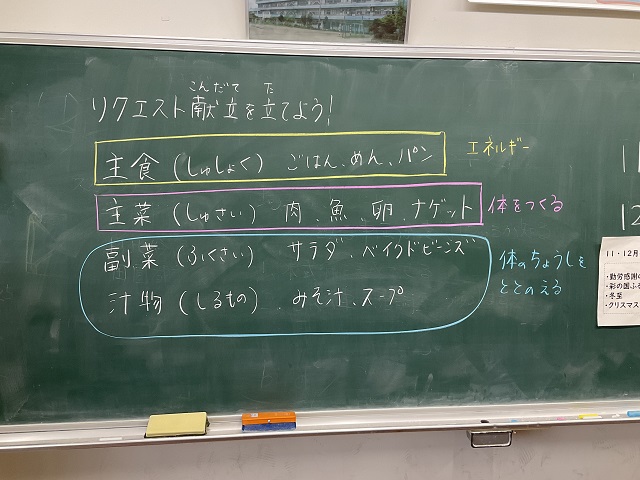 こんだて た
リクエスト献立を立てよう!
主食(しゅしょく) ごはん、めん、パン
エネルギー
主菜(しゅさい) 肉、魚、卵、ナゲット
体をつくる
副菜(ふくさい) サラダ、ベイクドビーンズ
体のちょうしを
ととのえる
汁物(しるもの)、みそ汁、スープ
11
12
11・12月
・勤労感謝の
・彩の国ふる
・冬至
・クリスマス